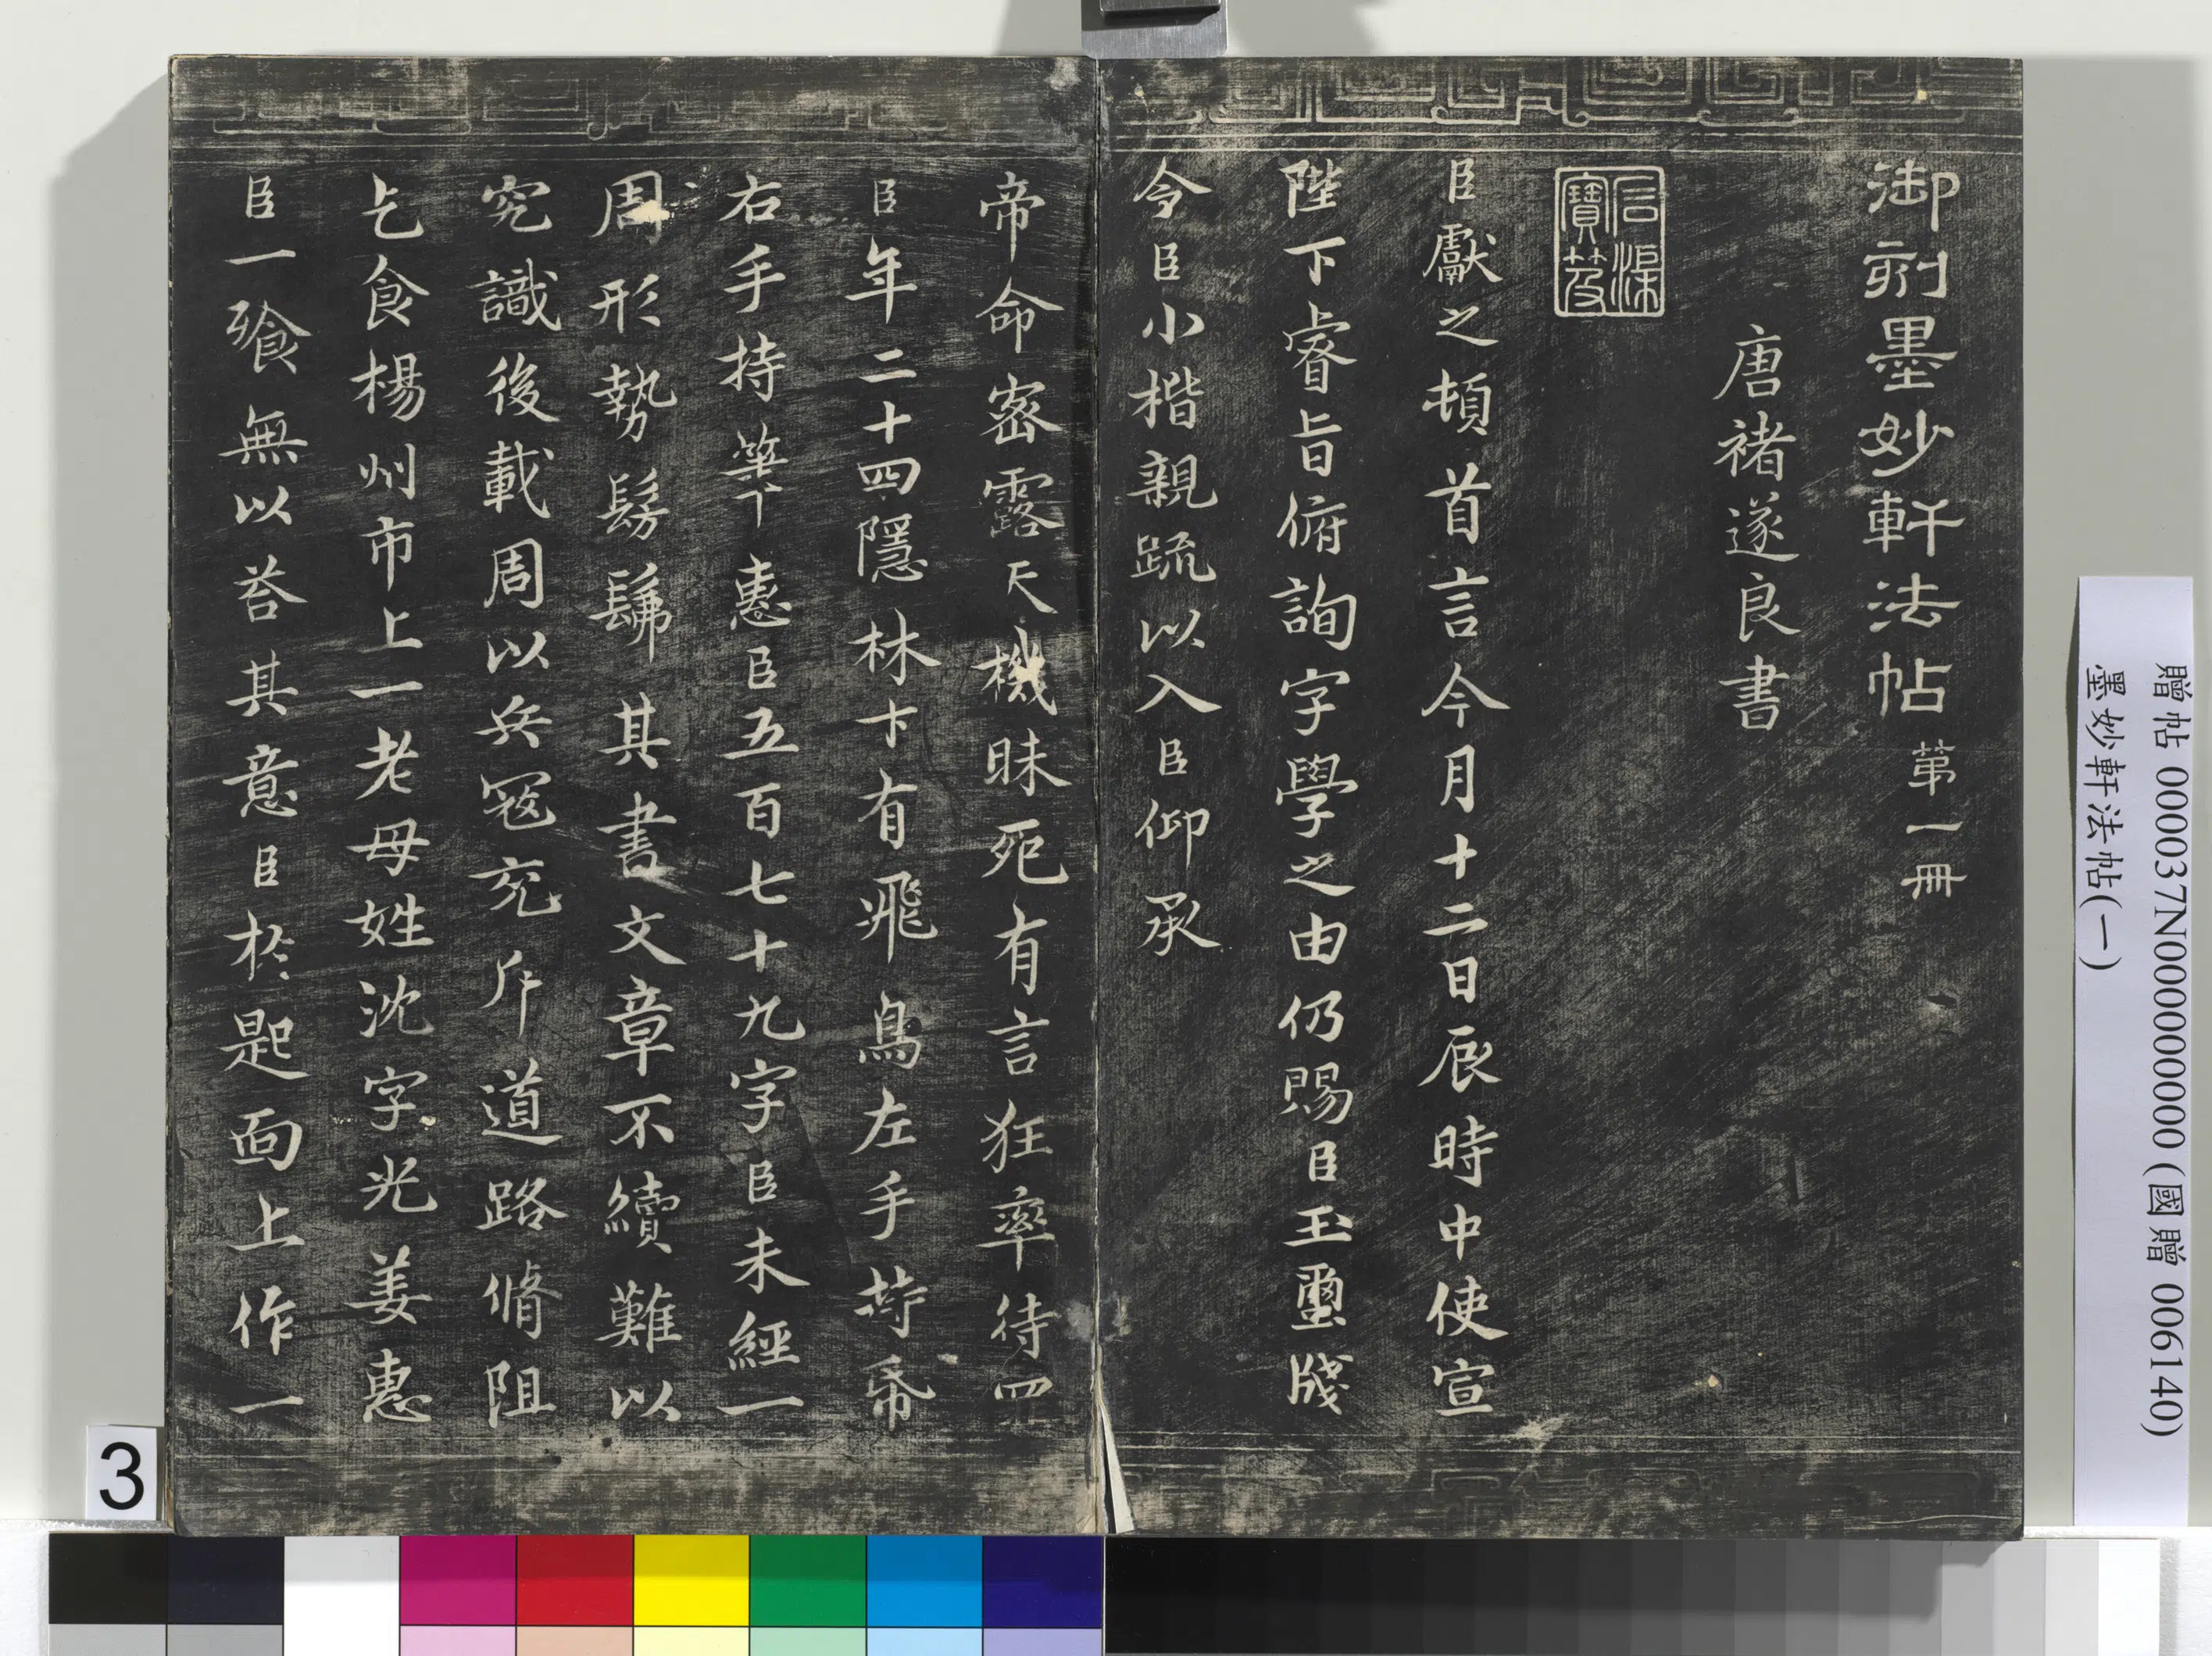 御刻墨妙軒法帖 第一冊
唐褚遂良書
石渠寶笈
臣獻之頓首言今月十二日辰時中使宣
陛下睿旨俯詢字學之由仍賜臣玉璽牋
令臣小楷親䟽以入臣仰承
帝命密露天機昧死有言狂率待罒
臣年二十四隱林下有飛鳥左手持帋
右手持筆惠臣五百七十九字臣未經一
周形勢髣髴其書文章不續難以
究識後載周以兵冦充斥道路脩阻
乞食楊州市上一老母姓沈字光姜惠
臣一飱無以荅其意臣於匙面上作一
贈帖 000037N000000000 (國贈 006140)
墨妙軒法帖(一)
3